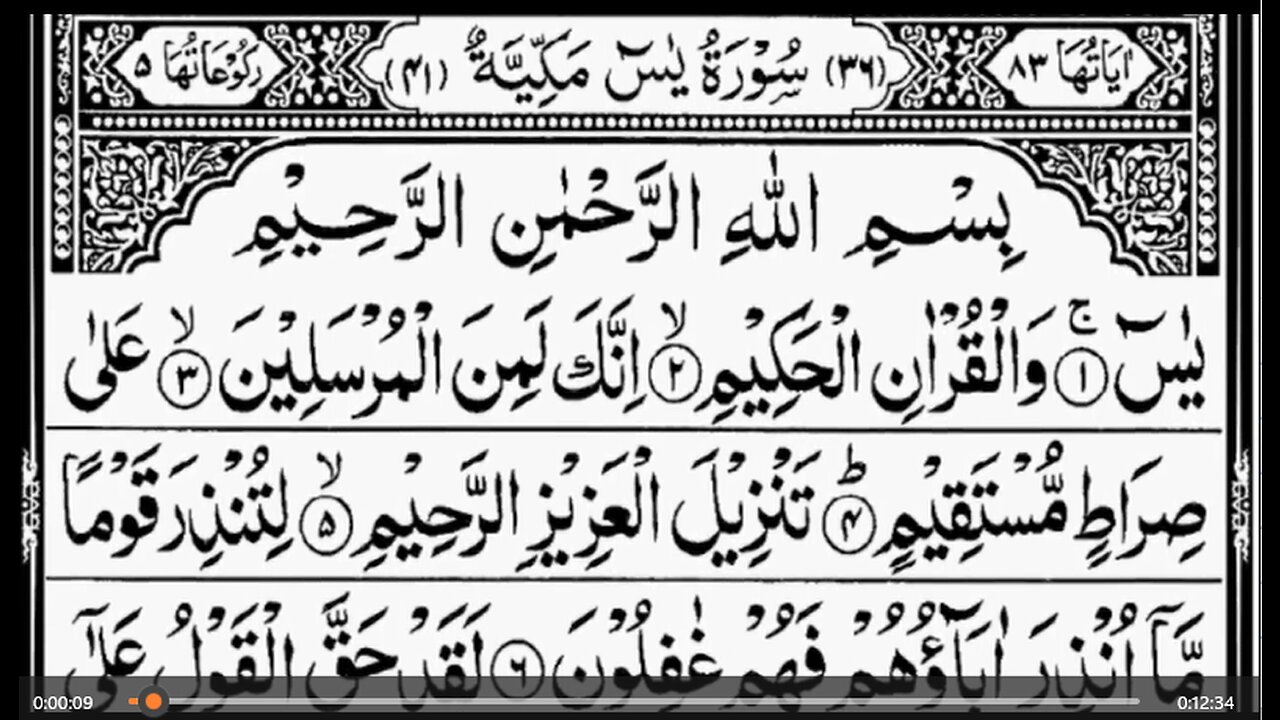 اٰيَاتُهَا ٨٣ (٣٦) سُوْرَةُ يٰسٓ مَكِّيَّةٌ (٤١) رُكُوْعَاتُهَا ٥
بِسْمِ اللّٰهِ الرَّحْمٰنِ الرَّحِيْمِ
يٰسٓ ۚ ١ وَالْقُرْاٰنِ الْحَكِيْمِ ۙ ٢ اِنَّكَ لَمِنَ الْمُرْسَلِيْنَ ۙ ٣ عَلٰى
صِرَاطٍ مُّسْتَقِيْمٍ ؕ ۴ تَنْزِيْلَ الْعَزِيْزِ الرَّحِيْمِ ۙ ۵ لِتُنْذِرَ قَوْمًا
مَّاۤ اُنْذِرَ اٰبَآؤُهُمْ فَهُمْ غٰفِلُوْنَ ٦ لَقَدْ حَقَّ الْقَوْلُ عَلٰۤى
0:00:09 0:12:34